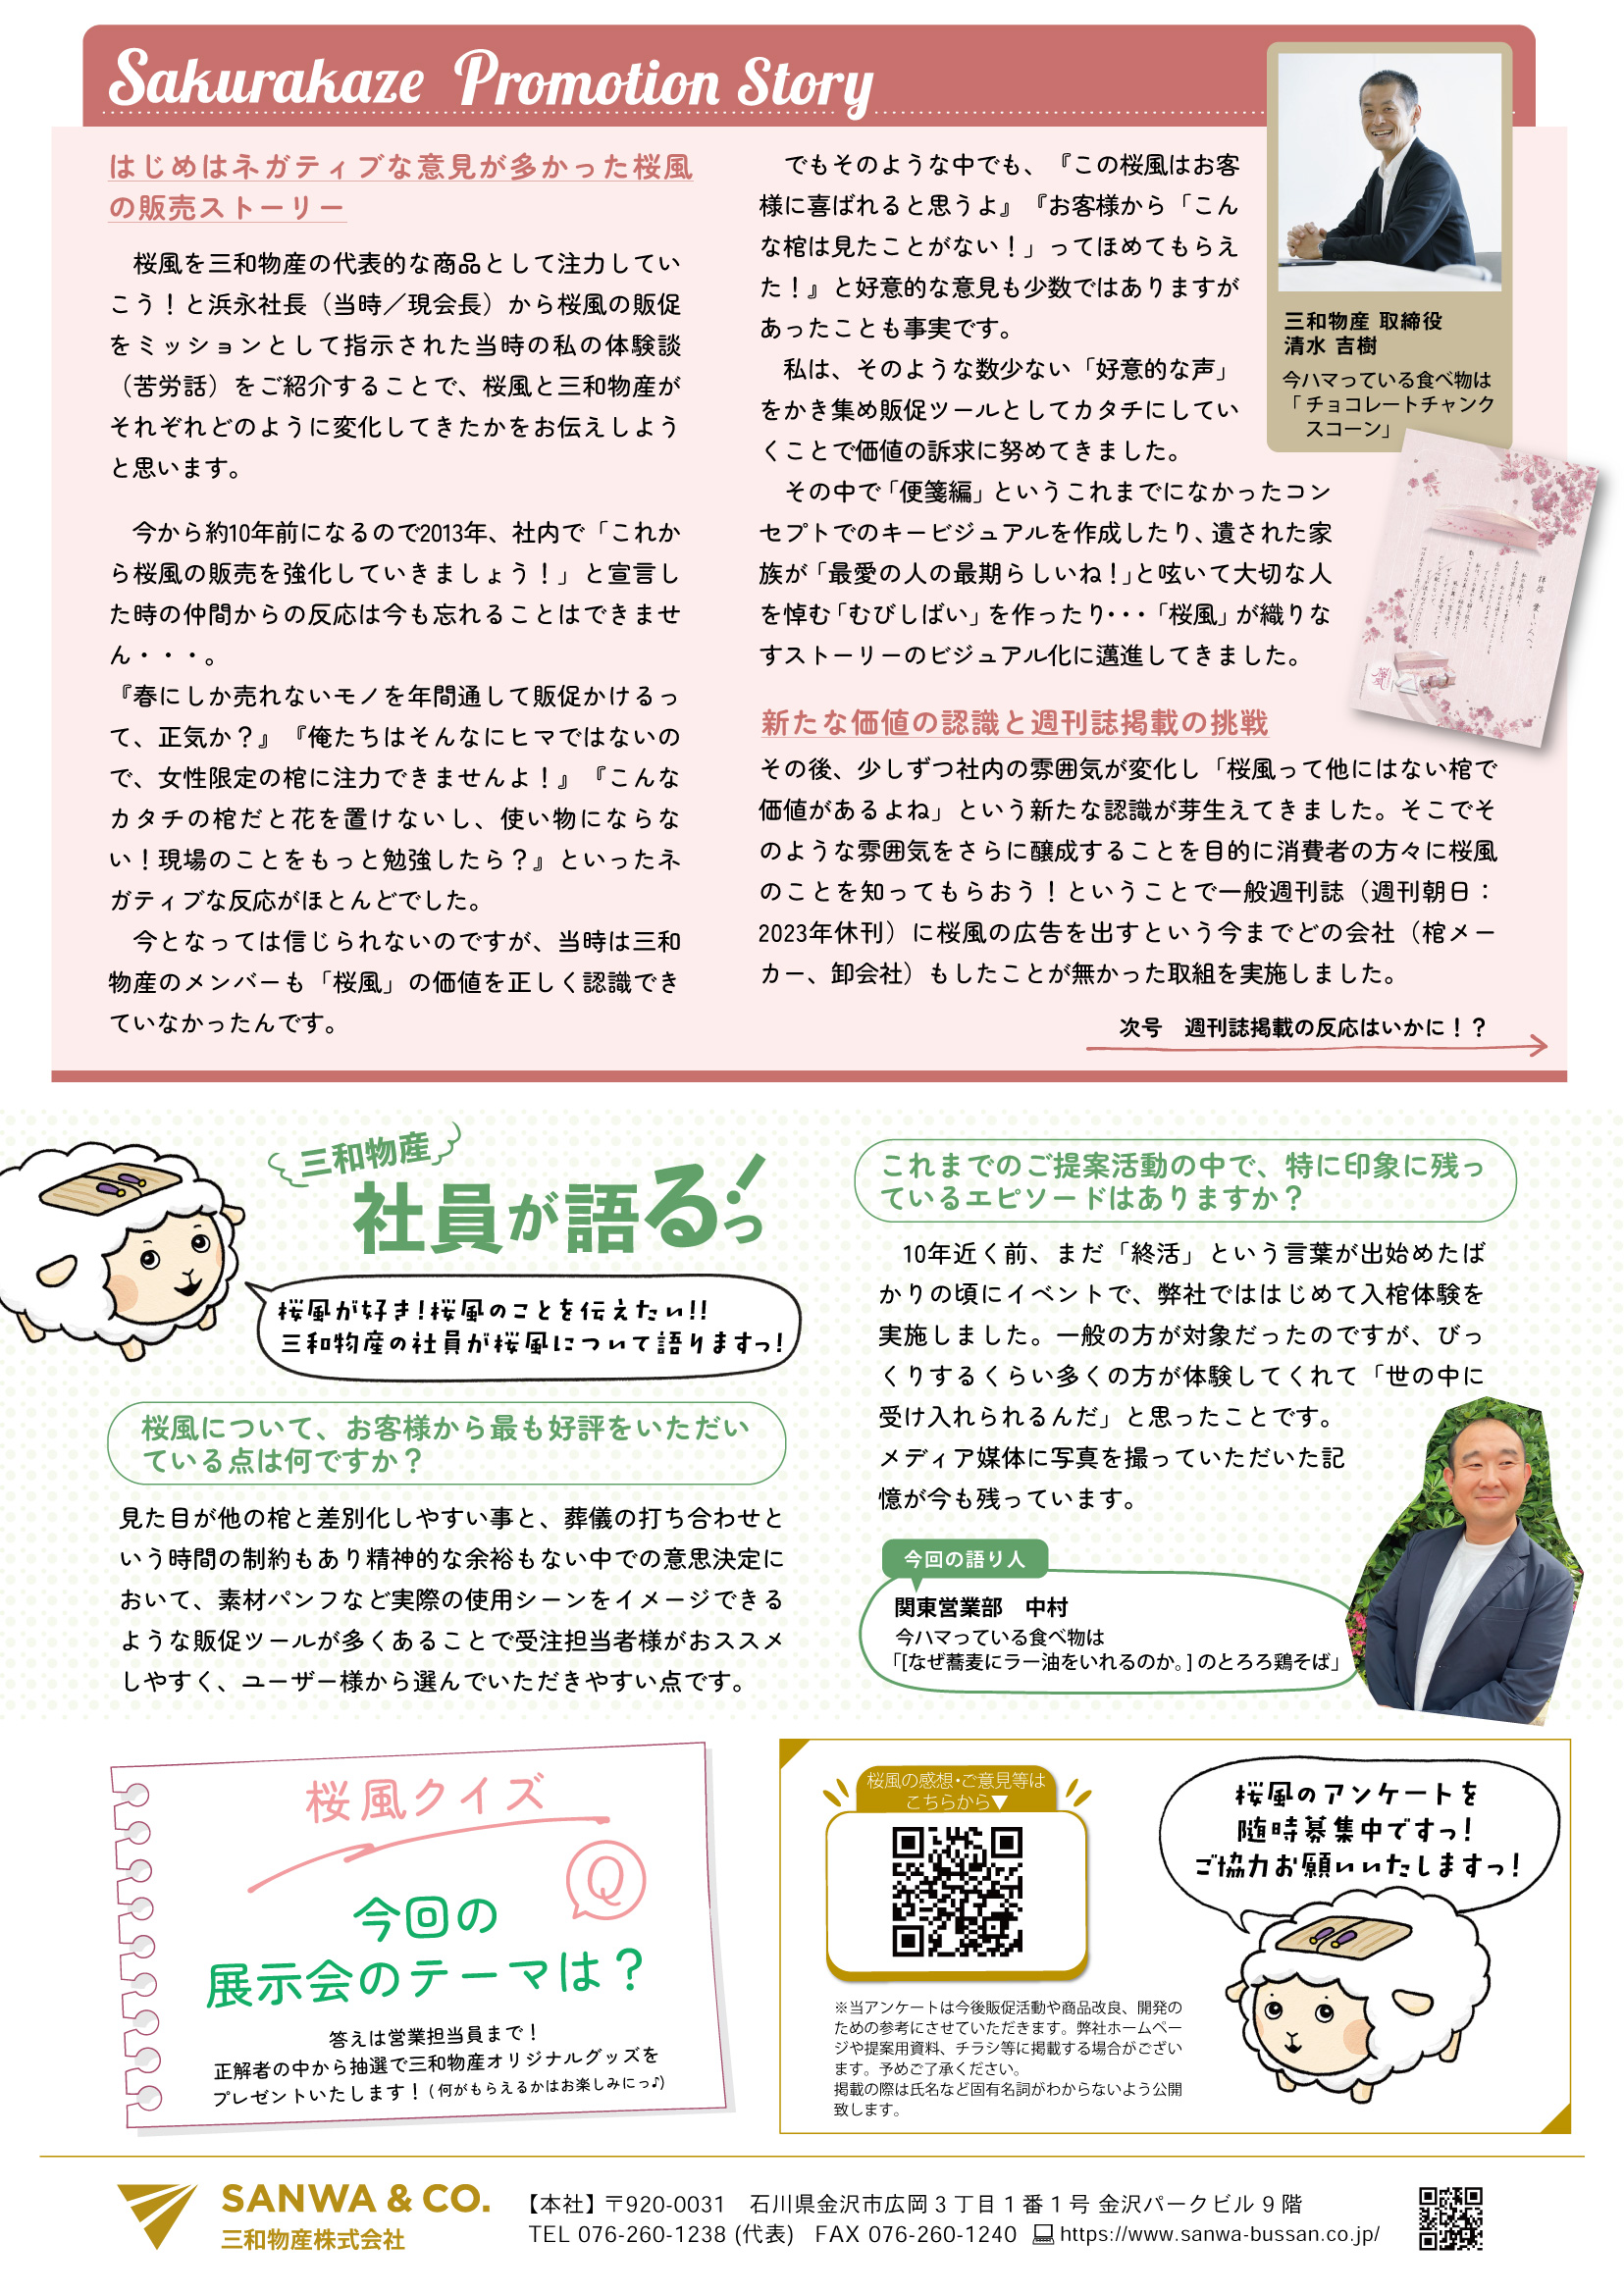 Sakurakaze Promotion Story
はじめはネガティブな意見が多かった桜風
の販売ストーリー
桜風を三和物産の代表的な商品として注力してい
こう！と浜永社長（当時／現会長）から桜風の販促
をミッションとして指示された当時の私の体験談
（苦労話）をご紹介することで、桜風と三和物産が
それぞれどのように変化してきたかをお伝えしよう
と思います。
今から約10年前になるので2013年、社内で「これか
ら桜風の販売を強化していきましょう！」と宣言し
た時の仲間からの反応は今も忘れることはできませ
ん・・・。
『春にしか売れないモノを年間通して販促かけるっ
て、正気か？』『俺たちはそんなにヒマではないの
で、女性限定の棺に注力できませんよ！』『こんな
カタチの棺だと花を置けないし、使い物にならな
い！現場のことをもっと勉強したら？』といったネ
ガティブな反応がほとんどでした。
今となっては信じられないのですが、当時は三和
物産のメンバーも「桜風」の価値を正しく認識でき
ていなかったんです。
でもそのような中でも、『この桜風はお客
様に喜ばれると思うよ』『お客様から「こん
な棺は見たことがない！」ってほめてもらえ
た！』と好意的な意見も少数ではありますが
あったことも事実です。
私は、そのような数少ない「好意的な声」
をかき集め販促ツールとしてカタチにしてい
くことで価値の訴求に努めてきました。
その中で「便箋編」というこれまでになかったコン
セプトでのキービジュアルを作成したり、遺された家
族が「最愛の人の最期らしいね！」と呟いて大切な人
を悼む「むびしばい」を作ったり・・・「桜風」が織りな
すストーリーのビジュアル化に邁進してきました。
三和物産 取締役
清水 吉樹
今ハマっている食べ物は
「チョコレートチャンク
スコーン」
新たな価値の認識と週刊誌掲載の挑戦
その後、少しずつ社内の雰囲気が変化し「桜風って他にはない棺で
価値があるよね」という新たな認識が芽生えてきました。そこでそ
のような雰囲気をさらに醸成することを目的に消費者の方々に桜風
のことを知ってもらおう！ということで一般週刊誌（週刊朝日：
2023年休刊）に桜風の広告を出すという今までどの会社（棺メー
カー、卸会社）もしたことが無かった取組を実施しました。
次号　週刊誌掲載の反応はいかに！？
三和物産
社員が語るっ！
桜風が好き！桜風のことを伝えたい！！
三和物産の社員が桜風について語りますっ！
桜風について、お客様から最も好評をいただい
ている点は何ですか？
見た目が他の棺と差別化しやすい事と、葬儀の打ち合わせと
いう時間の制約もあり精神的な余裕もない中での意思決定に
おいて、素材パンフなど実際の使用シーンをイメージできる
ような販促ツールが多くあることで受注担当者様がおススメ
しやすく、ユーザー様から選んでいただきやすい点です。
これまでのご提案活動の中で、特に印象に残っ
ているエピソードはありますか？
10年近く前、まだ「終活」という言葉が出始めたば
かりの頃にイベントで、弊社でははじめて入棺体験を
実施しました。一般の方が対象だったのですが、びっ
くりするくらい多くの方が体験してくれて「世の中に
受け入れられるんだ」と思ったことです。
メディア媒体に写真を撮っていただいた記
憶が今も残っています。
今回の語り人
関東営業部　中村
今ハマっている食べ物は
「[なぜ蕎麦にラー油をいれるのか。] のとろろ鶏そば」
桜風クイズ
Q
今回の
展示会のテーマは？
答えは営業担当員まで！
正解者の中から抽選で三和物産オリジナルグッズを
プレゼントいたします！（何がもらえるかはお楽しみにっ♪）
桜風の感想・ご意見等は
こちらから▼
※当アンケートは今後販促活動や商品改良、開発の
ための参考にさせていただきます。弊社ホームペー
ジや提案用資料、チラシ等に掲載する場合がござい
ます。予めご了承ください。
掲載の際は氏名など固有名詞がわからないよう公開
致します。
桜風のアンケートを
随時募集中ですっ！
ご協力お願いいたしますっ！
SANWA & CO.
三和物産株式会社
【本社】〒920-0031　石川県金沢市広岡3丁目1番1号 金沢パークビル9階
TEL 076-260-1238 (代表)　FAX 076-260-1240　https://www.sanwa-bussan.co.jp/